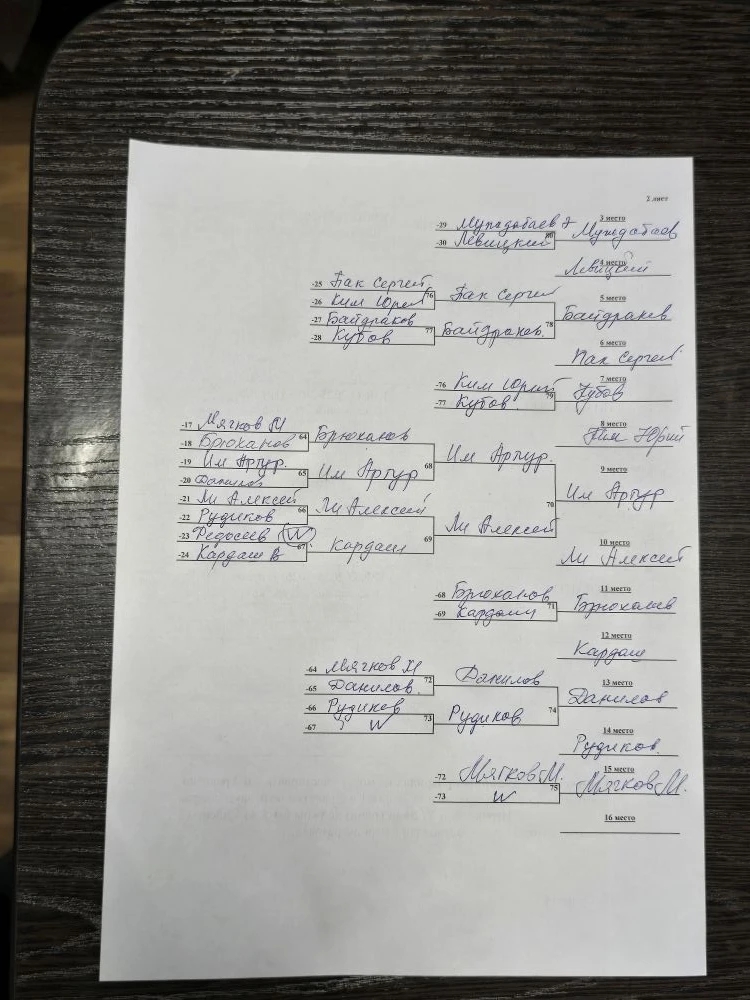 2 лист
3 место
-29 Мурадобаев Э
-30 Левицкий 80 Мурадобаев
4 место
Левицкий
-25 Пак Сергей
-26 Ким Юрий 76 Пак Сергей
5 место
-27 Байдраков
Байдраков
-28 Кубов 77 Байдраков 78
6 место
Пак Сергей
7 место
-76 Ким Юрий
-77 Кубов 79 Кубов
8 место
Ким Юрий
-17 Мягков М
-18 Брюханов 64 Брюханов
-19 Им Артур
Им Артур
9 место
-20 Данилов 65 Им Артур 68
-21 Ли Алексей
Им Артур
-22 Рудиков 66 Ли Алексей 70
-23 Федосеев W
Ли Алексей
-24 Кардаш В 67 Кардаш 69
10 место
Ли Алексей
11 место
-68 Брюханов
-69 Кардаш 71 Брюханов
12 место
Кардаш
-64 Мягков М
-65 Данилов 72 Данилов
13 место
-66 Рудиков
Данилов
-67 W 73 Рудиков 74
14 место
Рудиков
15 место
-72 Мягков М.
-73 W 75 Мягков М.
16 место